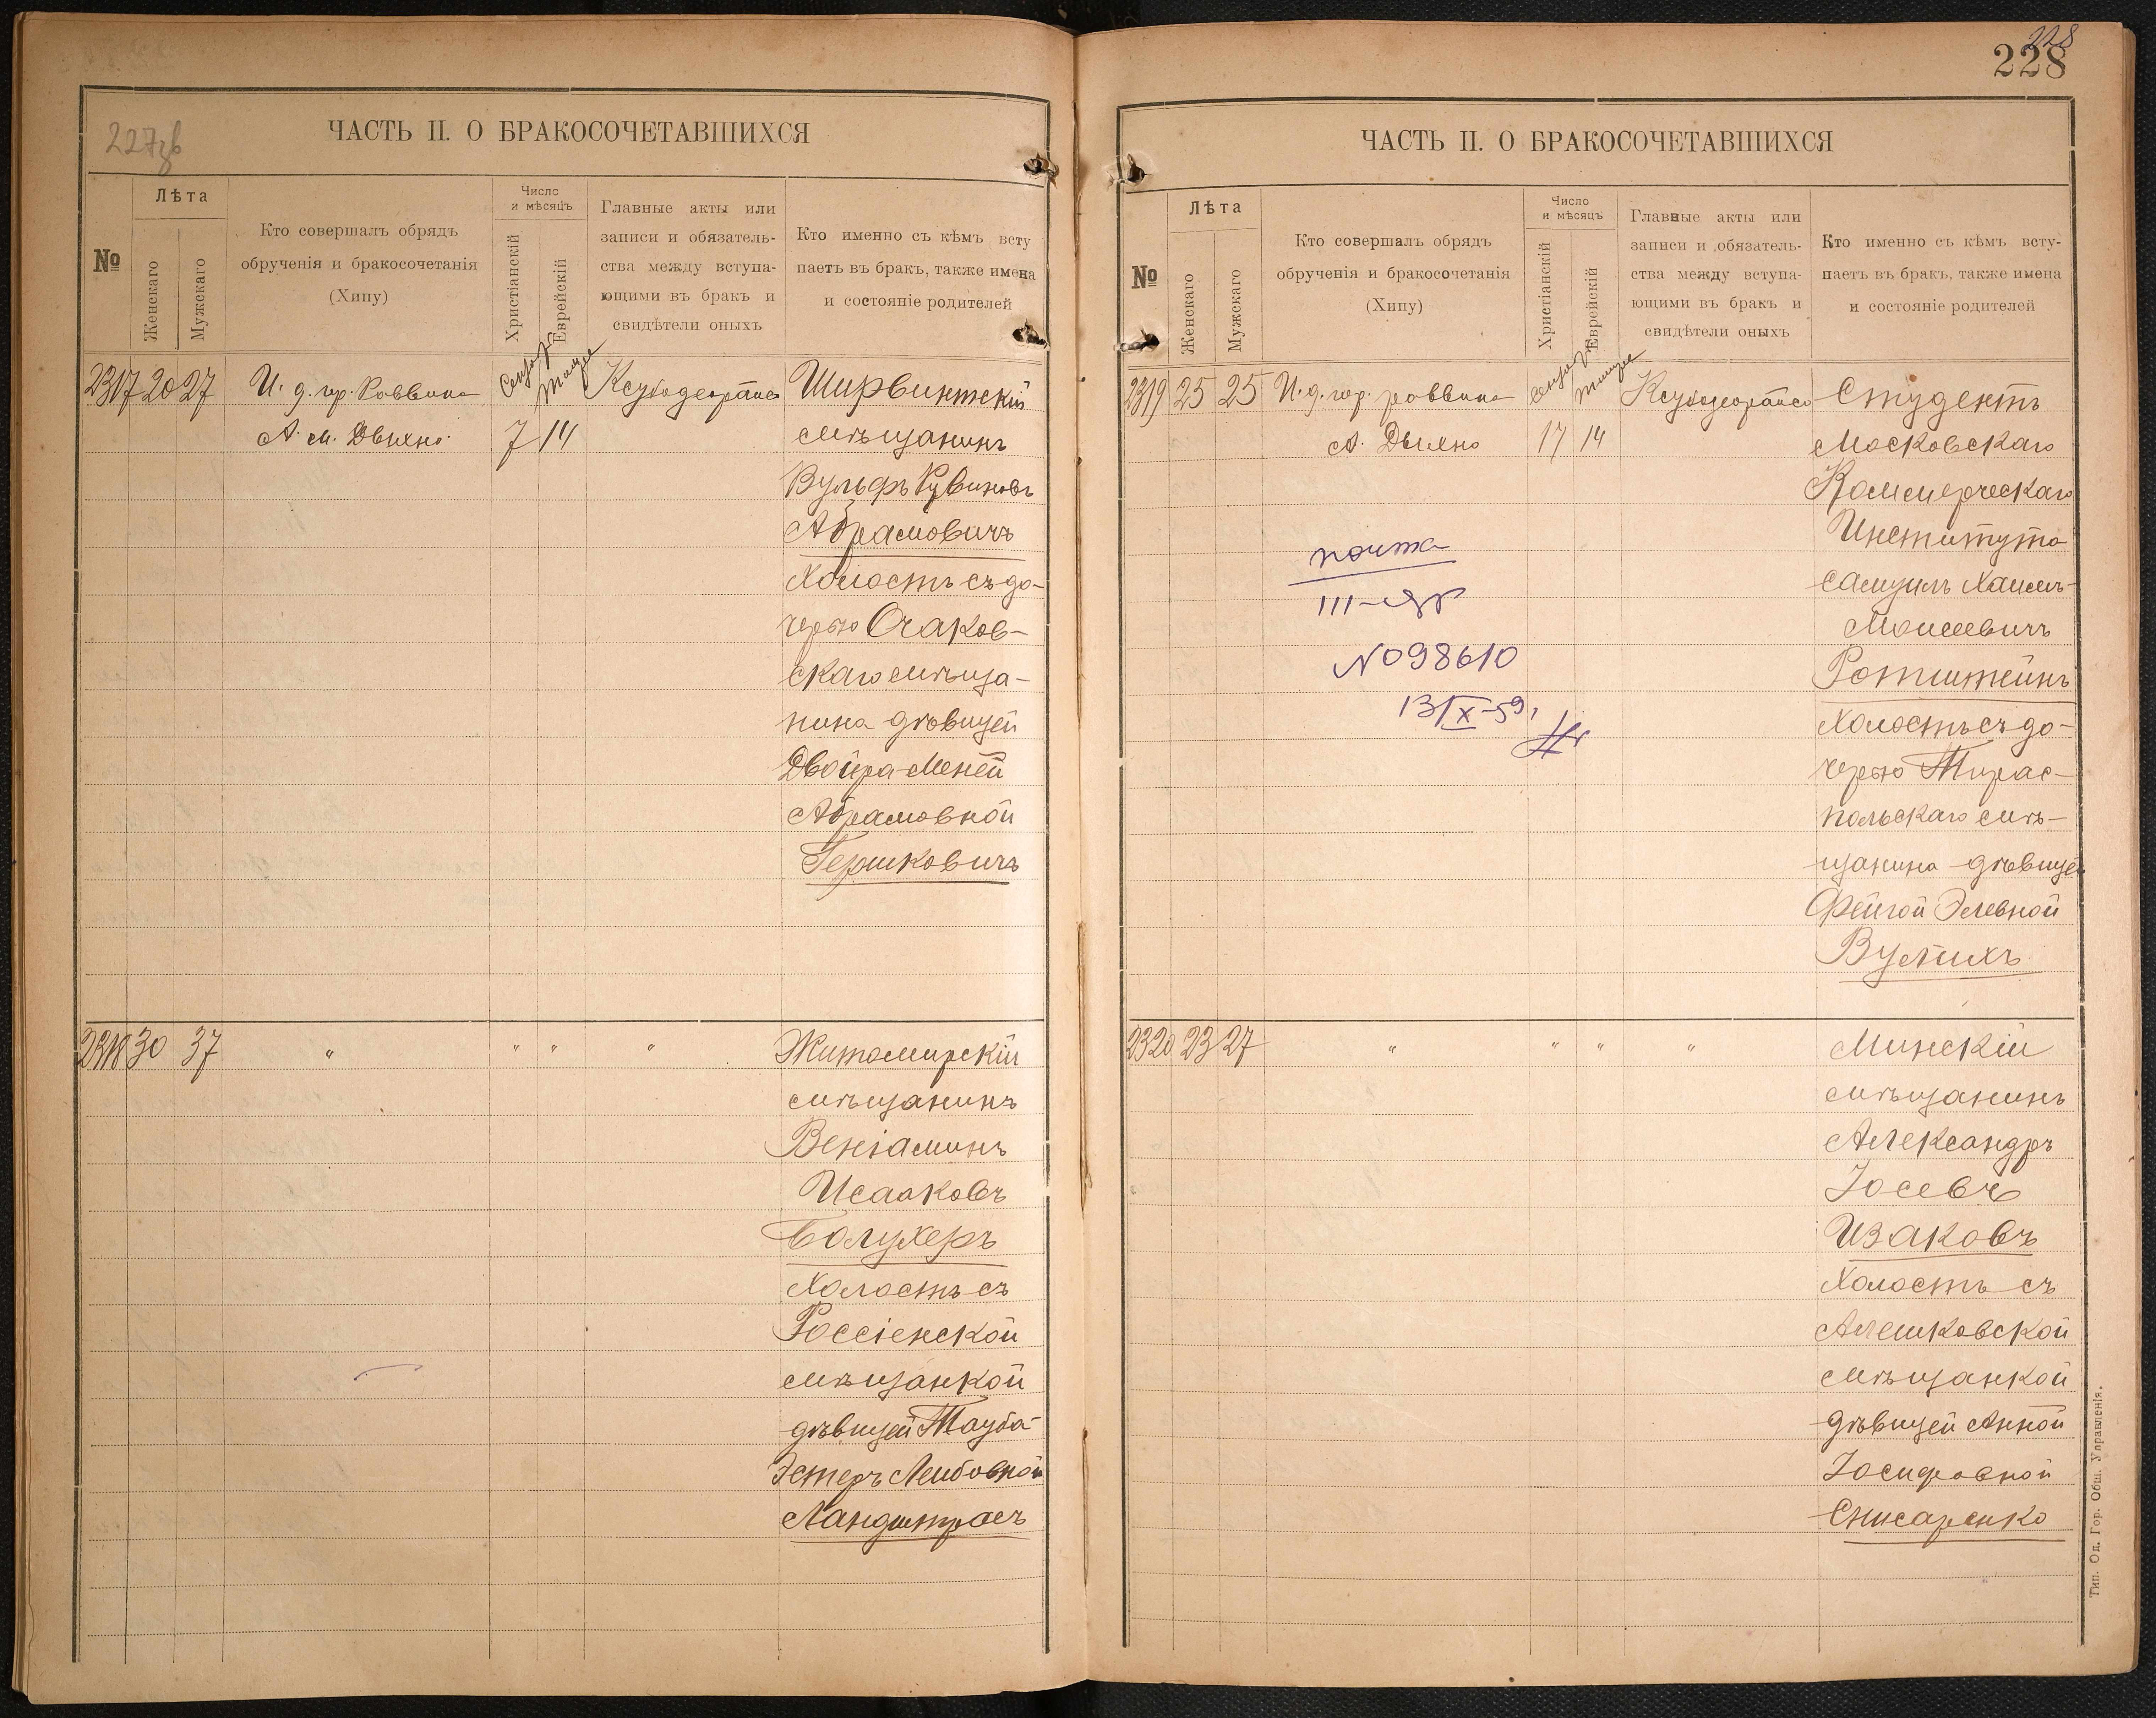 227об
ЧАСТЬ II. О БРАКОСОЧЕТАВШИХСЯ
№
Лѣта
Женскаго
Мужскаго
Кто совершалъ обрядъ
обрученія и бракосочетанія
(Хипу)
Число
и мѣсяцъ
Христіанскій
Еврейскій
Главные акты или
записи и обязатель-
ства между вступа-
ющими въ бракъ и
свидѣтели оныхъ
Кто именно съ кѣмъ всту
паетъ въ бракъ, также имена
и состояніе родителей
2317 20 27 И. д. гор. Раввина Ширвинтскій
А. М. Дыхно 7 14 мѣщанинъ
Вульфъ Рувиновъ
Абрамовичъ
холостъ съ до-
черью Очаков-
скаго мѣща-
нина дѣвицей
Двойра-Меней
Абрамовной
Гершковичъ
2318 30 37 " " " " Житомирскій
мѣщанинъ
Веніаминъ
Исааковъ
Болухеръ
холостъ съ
Россіенской
мѣщанкой
дѣвицей Тауба-
Эстеръ Лейбовной
Ландштрасъ
228
228
ЧАСТЬ II. О БРАКОСОЧЕТАВШИХСЯ
№
Лѣта
Женскаго
Мужскаго
Кто совершалъ обрядъ
обрученія и бракосочетанія
(Хипу)
Число
и мѣсяцъ
Христіанскій
Еврейскій
Главные акты или
записи и обязатель-
ства между вступа-
ющими въ бракъ и
свидѣтели оныхъ
Кто именно съ кѣмъ всту-
паетъ въ бракъ, также имена
и состояніе родителей
2319 25 25 И. д. гор. раввина Студентъ
А. Дыхно 17 14 Московскаго
Коммерческаго
Института
Самуилъ Хаимъ-
Моисеевичъ
Ротштейнъ
холостъ съ до-
черью Тирас-
польскаго мѣ-
щанина дѣвицей
Фейгой Элевной
Вулихъ
почта
№ 98610
13/X-59,
2320 23 27 " " " " Минскій
мѣщанинъ
Александръ
Іосевъ
Изаковъ
холостъ съ
Алешковской
мѣщанкой
дѣвицей Анной
Іосифовной
Снисаренко
Тип. Од. Гор. Общ. Управленія.